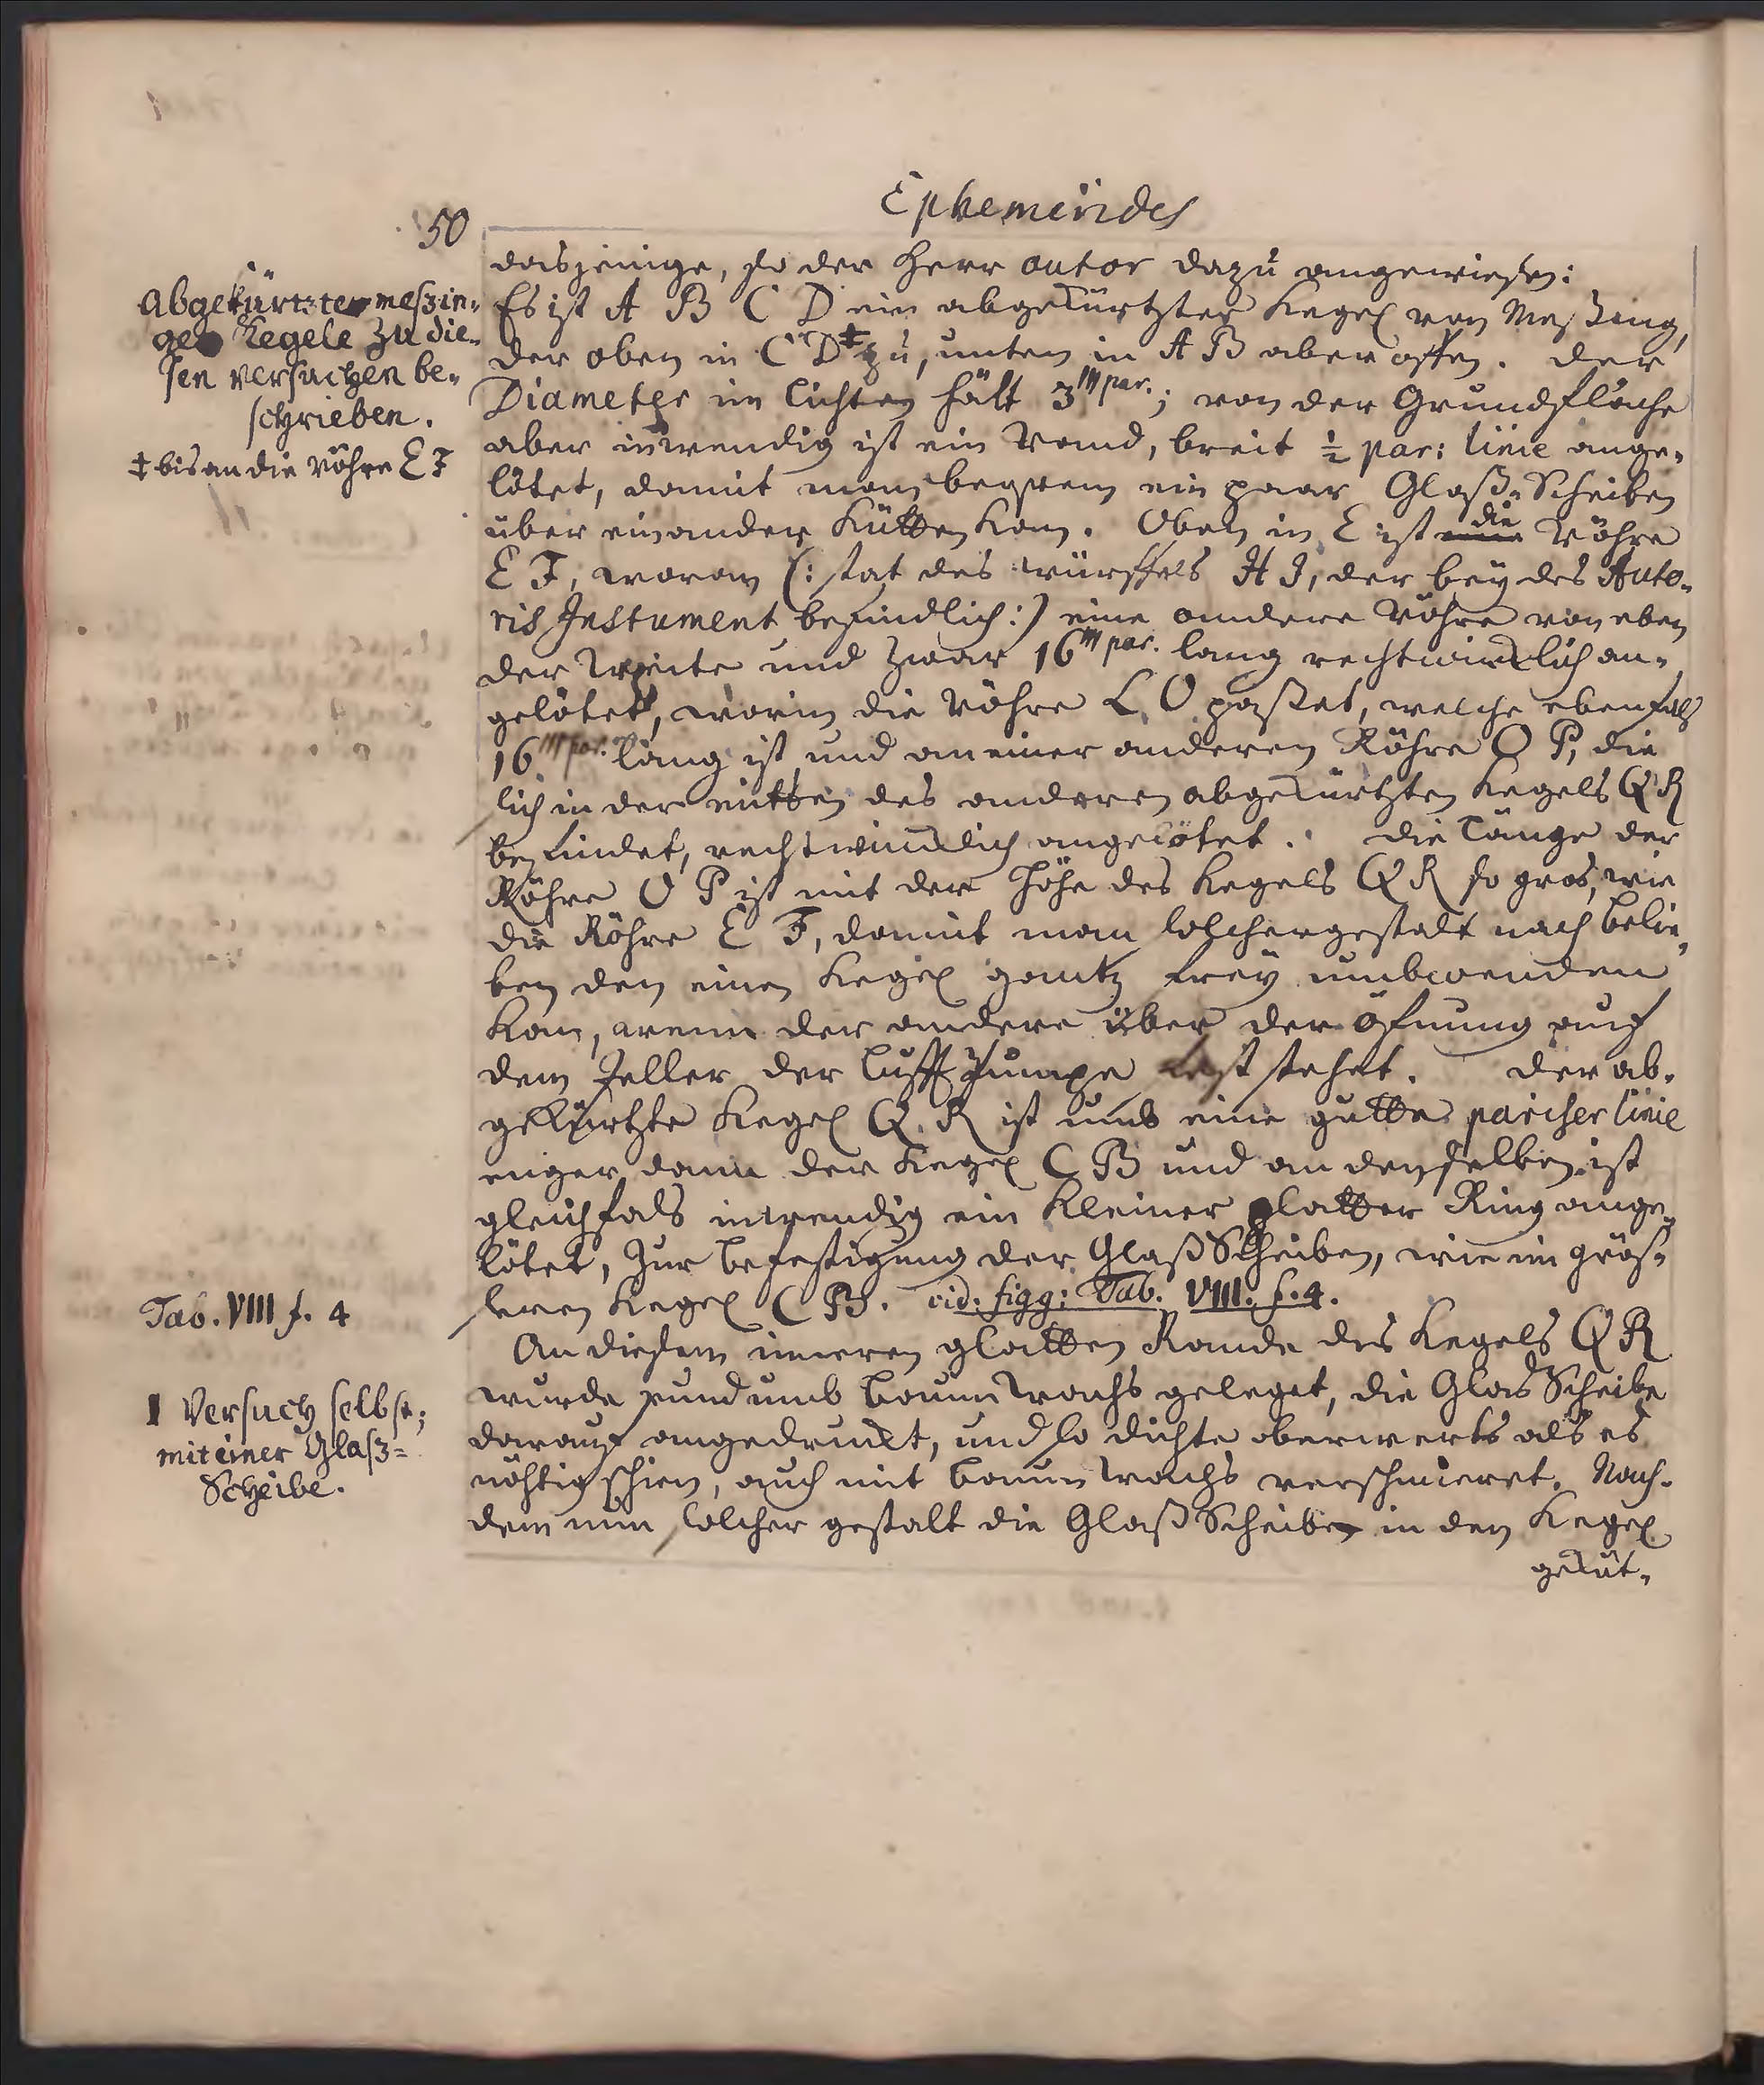 50
Ephemerides
dasjenige, so der Herr autor dazu angewiesen:
Es ist A B C D ein abgekürtzter Kegel von Meßing,
der oben in C D ‡ zu, unten in A B aber offen. der
Diameter im lichten hält 3''' par.; von der Grundfläche
aber inwendig ist ein Rand, breit ½ par: linie ange-
lötet, damit man beqvem ein paar Glaß-Scheiben
über einander kütten kan. Oben in E ist die Röhre
E F, woran (: stat des würffels H I, der bey des Auto-
ris Instument befindlich :) eine andere Röhre von eben
der Weite und zwar 16''' par. lang rechtwincklich an-
gelötet, worin die Röhre L O paßet, welche ebenfals
16''' par. lang ist und an einer anderen Röhre O P, die
sich in der mitten des anderen abgekürtzten Kegels Q R
befindet, rechtwincklich angelötet. die länge der
Röhre O P ist mit der Höhe des Kegels Q R so gros, wie
die Röhre E F, damit man solchergestalt nach belie-
ben den einen Kegel gantz frey umbwenden
kan, wenn der andere über der öfnung auf
dem Teller der lufft Pumpe fest stehet. der ab-
gekürtzte Kegel Q R ist umb eine gutte pariser linie
enger dann der Kegel C B und an demselben ist
gleichfals inwendig ein kleiner platter Ring ange-
lötet, zur befestigung der Glaß Scheiben, wie im grös-
seren Kegel C B. vid: figg: Tab. VIII. f. 4.
An diesem inneren glatten Rande des Kegels Q R
wurde rund umb baum Wachs geleget, die Glas Scheibe
darauf angedruckt, und so dichte oberwerts als es
nöhtig schien, auch mit baum Wachs verschmieret. Nach-
dem nun solcher gestalt die Glaß Scheibe in den Kegel
geküt-
Abgekürtzte meszin-
ge Kegele zu die-
sen versuchen be-
schrieben.
‡ bis an die röhre E F
Tab. VIII f. 4
I Versuch selbst;
mit einer Glasz=
Scheibe.